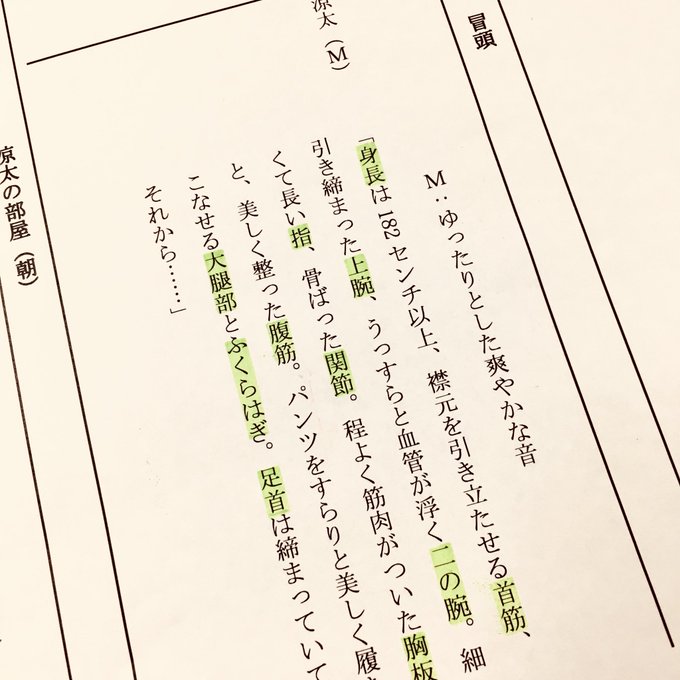 冒頭
M:ゆったりとした爽やかな音
涼太(M)
「身長は182センチ以上、襟元を引き立たせる首筋、
引き締まった上腕、うっすらと血管が浮く二の腕。細
くて長い指、骨ばった関節。程よく筋肉がついた胸板
と、美しく整った腹筋。パンツをすらりと美しく履き
こなせる大腿部とふくらはぎ。足首は締まっていて
それから……」
涼太の部屋(朝)